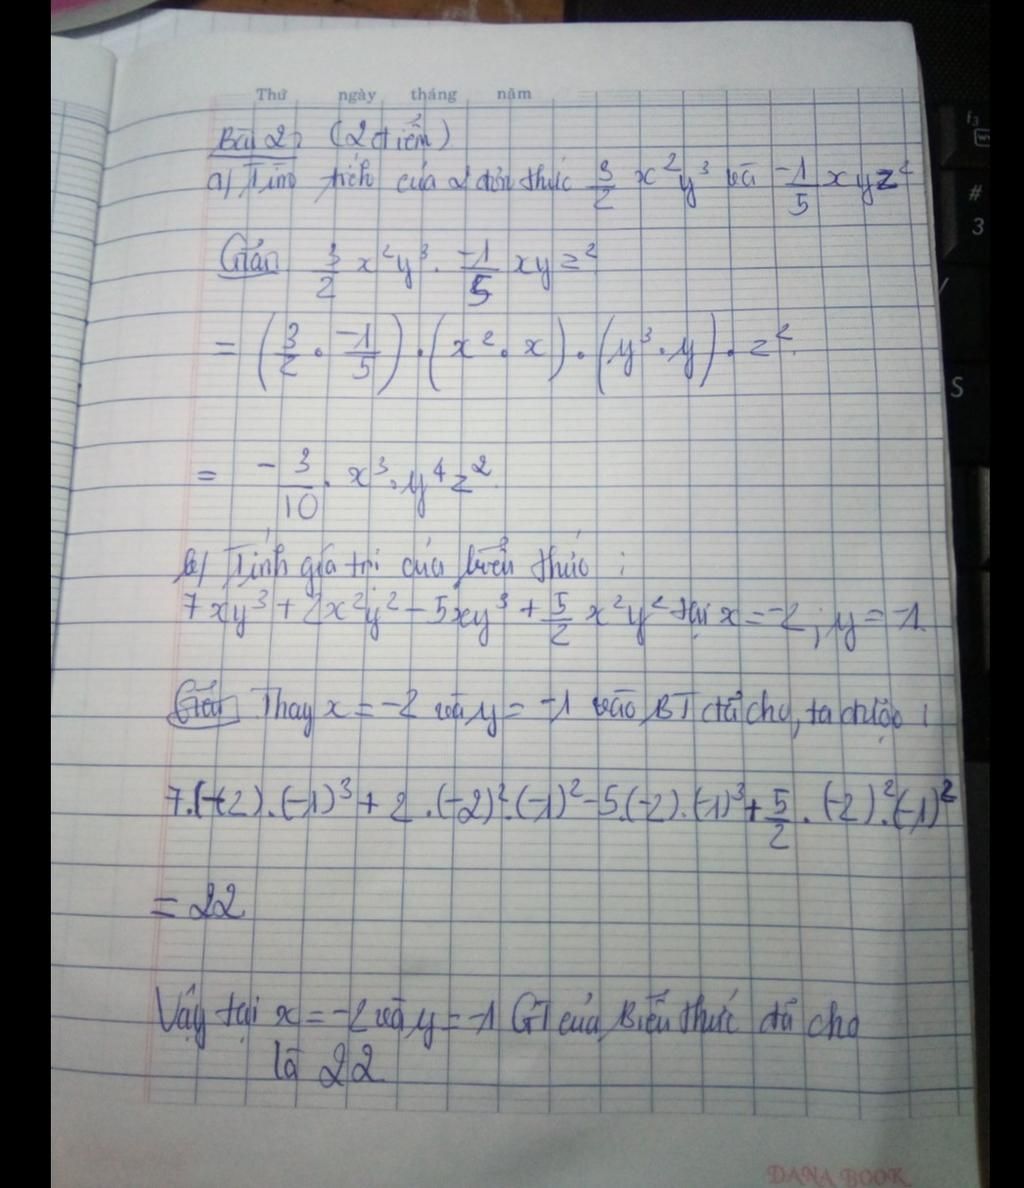 Thứ ngày tháng năm
Bài 2: (2 điểm)
a) Tìm tích của 2 đơn thức 3/2 x²y³ và -1/5 xyz²
Giải 3/2 x²y³ . -1/5 xyz²
= (3/2 . -1/5) . (x² . x) . (y³ . y) . z²
= -3/10 . x³ . y⁴z²
b) Tính giá trị của biểu thức :
7xy³ + 2x²y² - 5xy³ + 5/2 x²y² tại x = -2 ; y = -1.
Giải Thay x = -2 và y = -1 vào BT đã cho, ta được :
7.(-2).(-1)³ + 2.(-2)².(-1)² - 5.(-2).(-1)³ + 5/2 . (-2)².(-1)²
= 22
Vậy tại x = -2 và y = -1 GT của Biểu thức đã cho
là 22
DANA BOOK
f3
#
3
S